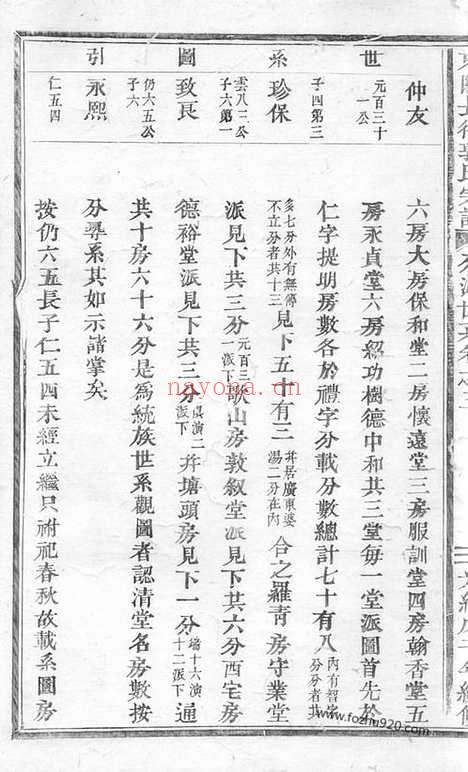 世系圖引
仲友 元百三十一公 六房大房保和堂二房懷遠堂三房服訓堂四房翰香堂五
子四第三 房永貞堂六房紹功樹德中和共三堂每一堂派圖首先於
珍保 仁字提明房數各於禮字分載分數總計七十有八 內有智字分分者共
雲八三公子六第一 多七分外有無傳不立分者共十三 見下五十有三 并居廣東婆湯二分在內 合之羅青房守業堂
致長 派見下共三分 元百三一派下 歌山房敦叙堂派見下共六分西宅房
仍六五公子六 德裕堂派見下共三分 俱演二派下 井塘頭房見下一分 端十六演十二派下 通
永熙 共十房六十六分是爲統族世系觀圖者認清堂名房數按
仁五四 分尋系其如示諸掌矣
按仍六五長子仁五四未經立繼只祔祀春秋故載系圖房
nayona.cn
www.fozhu920.com